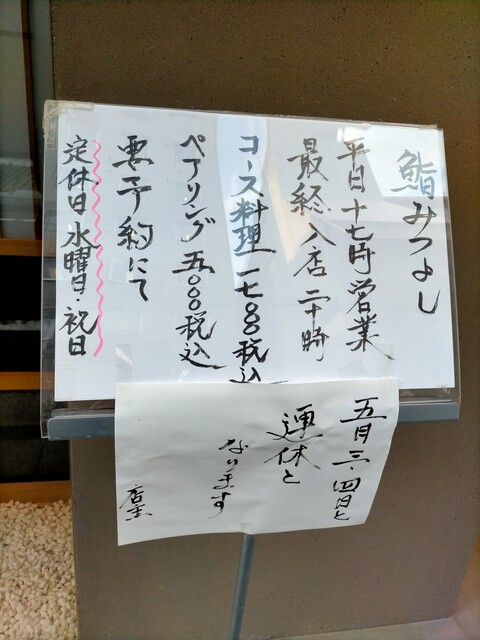 鮨みつよし
平日十七時営業
最終入店二十時
コース料理一七〇〇〇税込
ペアリング五〇〇〇税込
要予約にて
定休日水曜日・祝日
五月三・四日と
連休と
なります
店主